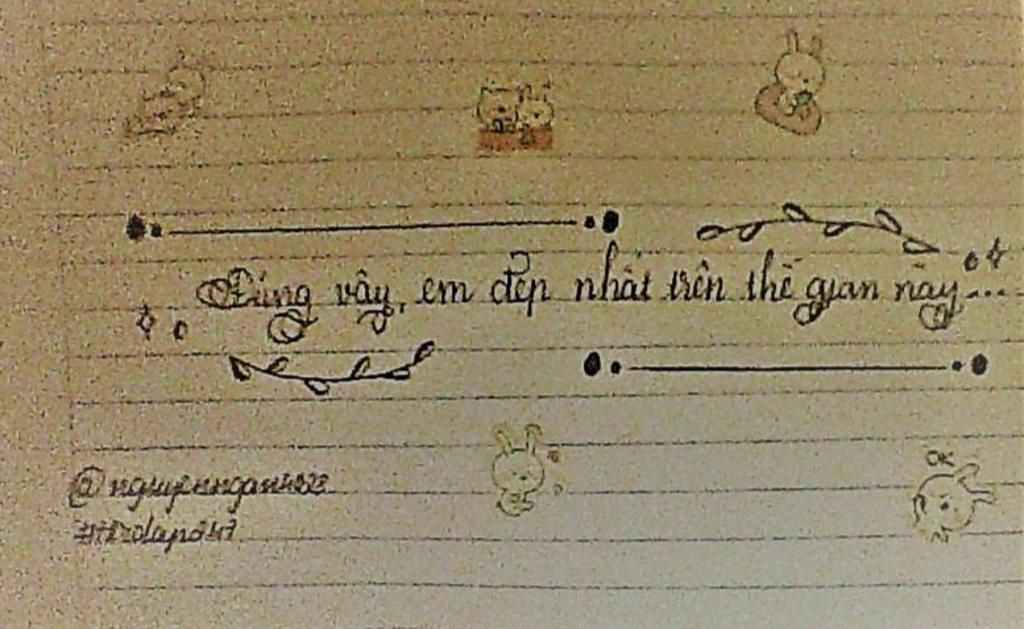 Đúng vậy, em đẹp nhất trên thế gian này...
OK